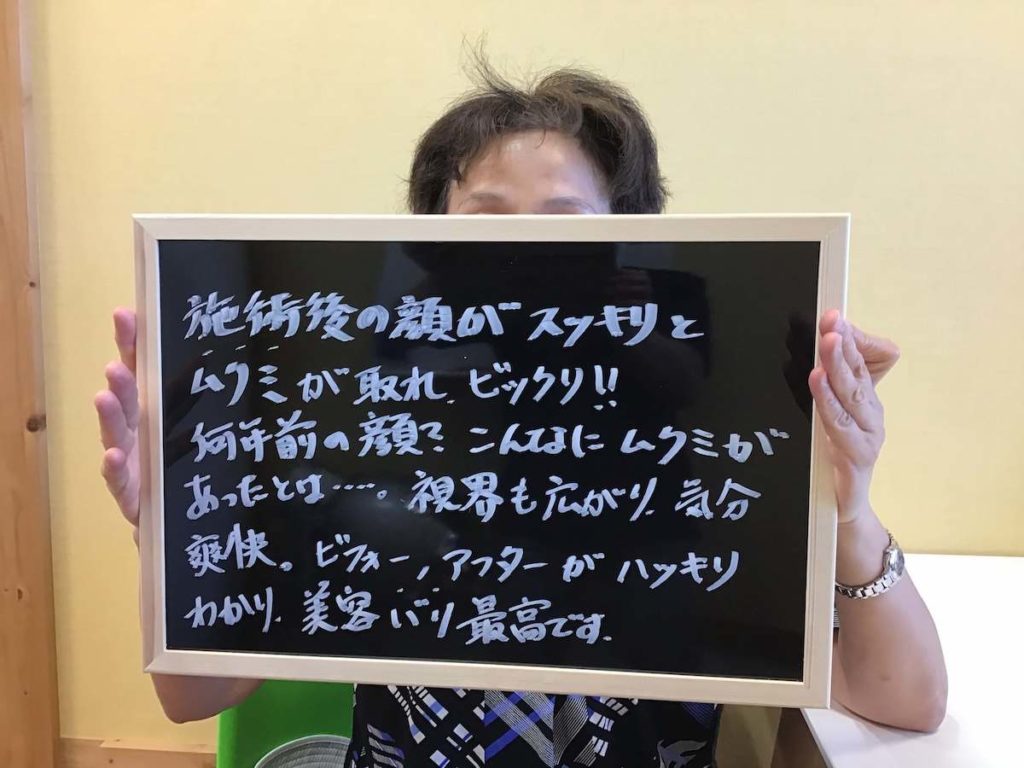 施術後の顔がスッキリと
ムクミが取れ、ビックリ!!
何年前の顔?こんなにムクミが
あったとは……。視界も広がり、気分
爽快。ビフォー,アフターがハッキリ
わかり、美容バリ最高です。